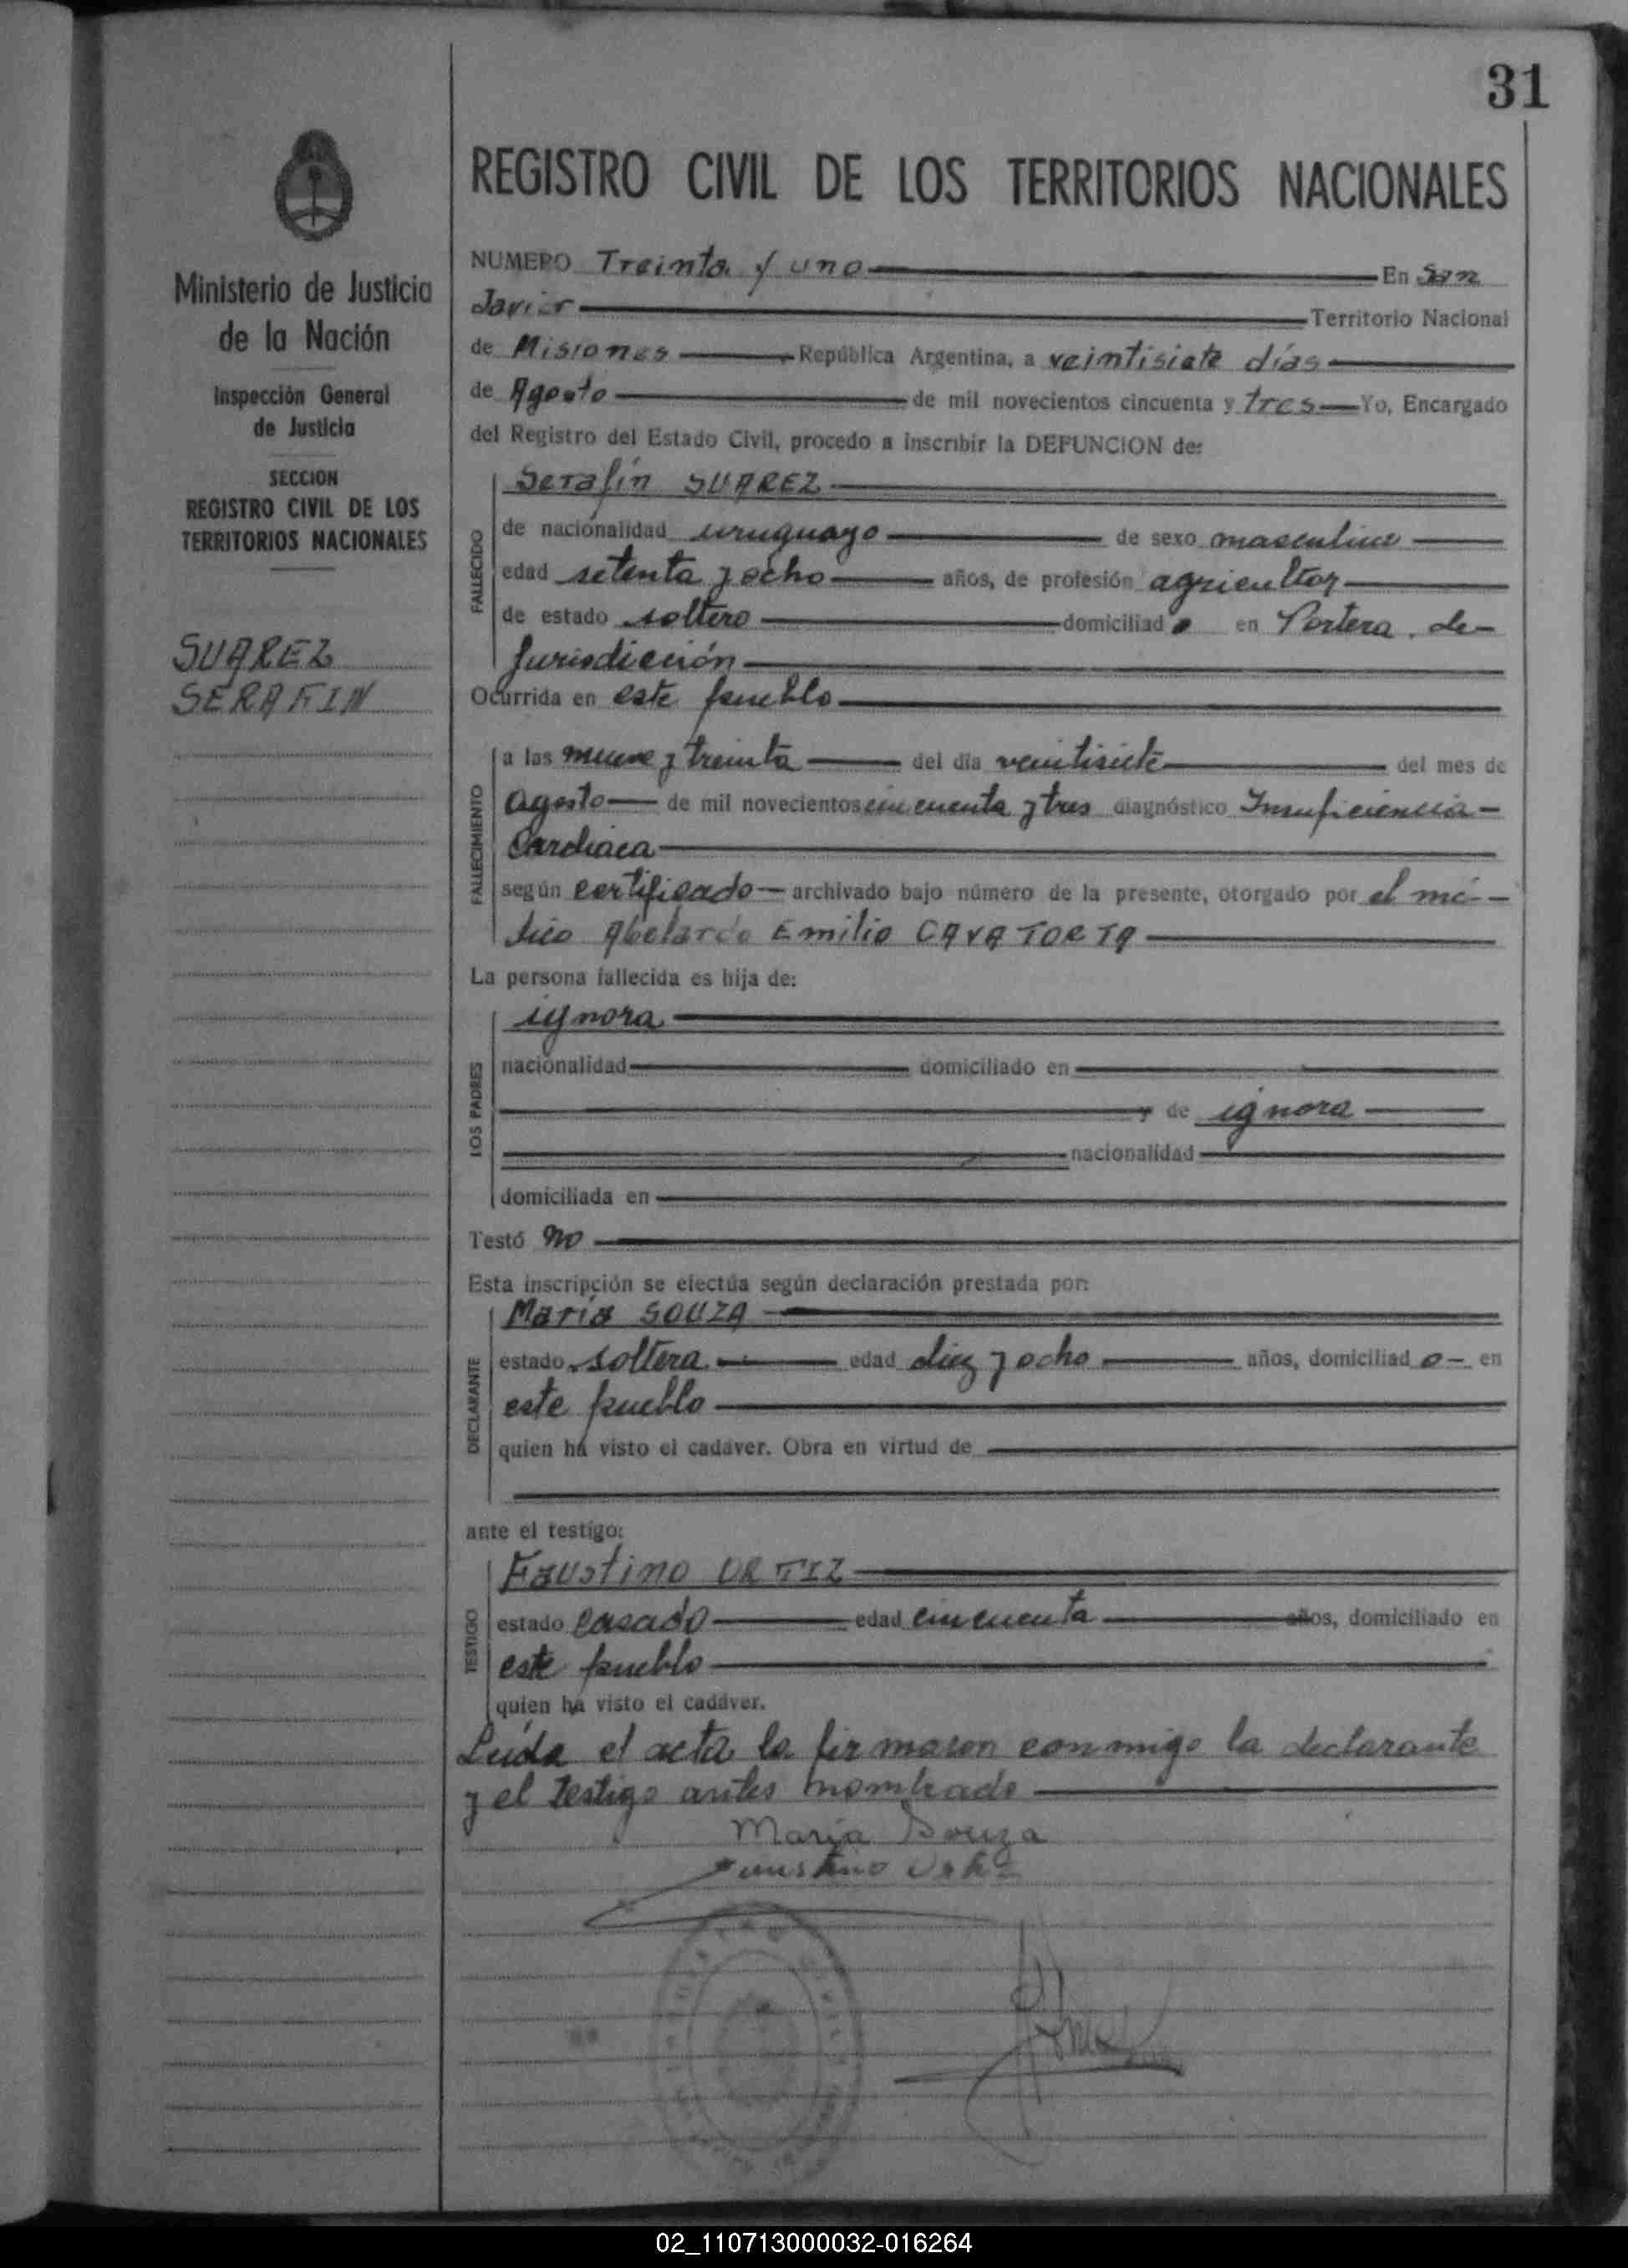 31
REGISTRO CIVIL DE LOS TERRITORIOS NACIONALES
Ministerio de Justicia
de la Nación
Inspección General
de Justicia
SECCION
REGISTRO CIVIL DE LOS
TERRITORIOS NACIONALES
SUAREZ
SERAFIN
NUMERO Treinta y uno En San
Javier Territorio Nacional
de Misiones República Argentina, a veintisiete días
de Agosto de mil novecientos cincuenta y tres Yo, Encargado
del Registro del Estado Civil, procedo a inscribir la DEFUNCION de:
FALLECIDO
Serafín SUAREZ
de nacionalidad uruguayo de sexo masculino
edad setenta y ocho años, de profesión agricultor
de estado soltero domiciliado en Portera de
Jurisdicción
Ocurrida en este pueblo
FALLECIMIENTO
a las nueve y treinta del día veintisiete del mes de
Agosto de mil novecientos cincuenta y tres diagnóstico Insuficiencia
Cardiaca
según certificado archivado bajo número de la presente, otorgado por el mé-
dico Abelardo Emilio CAVATORTA
La persona fallecida es hija de:
LOS PADRES
ignora
nacionalidad domiciliado en
y de ignora
nacionalidad
domiciliada en
Testó no
Esta inscripción se efectúa según declaración prestada por:
DECLARANTE
María SOUZA
estado soltera edad diez y ocho años, domiciliado en
este pueblo
quien ha visto el cadáver. Obra en virtud de
ante el testigo:
TESTIGO
Faustino ORTIZ
estado casado edad cincuenta años, domiciliado en
este pueblo
quien ha visto el cadáver.
Leída el acta la firmaron conmigo la declarante
y el testigo antes nombrado
María Souza
Faustino Ortiz
02_110713000032-016264